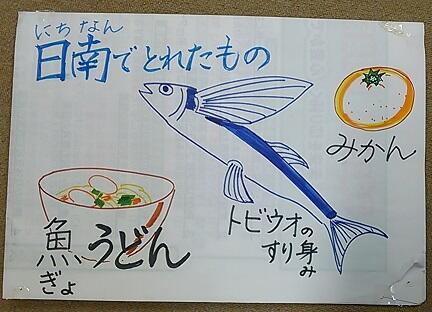 にちなん
日南でとれたもの
みかん
トビウオの
すり身み
魚うどん
ぎょ